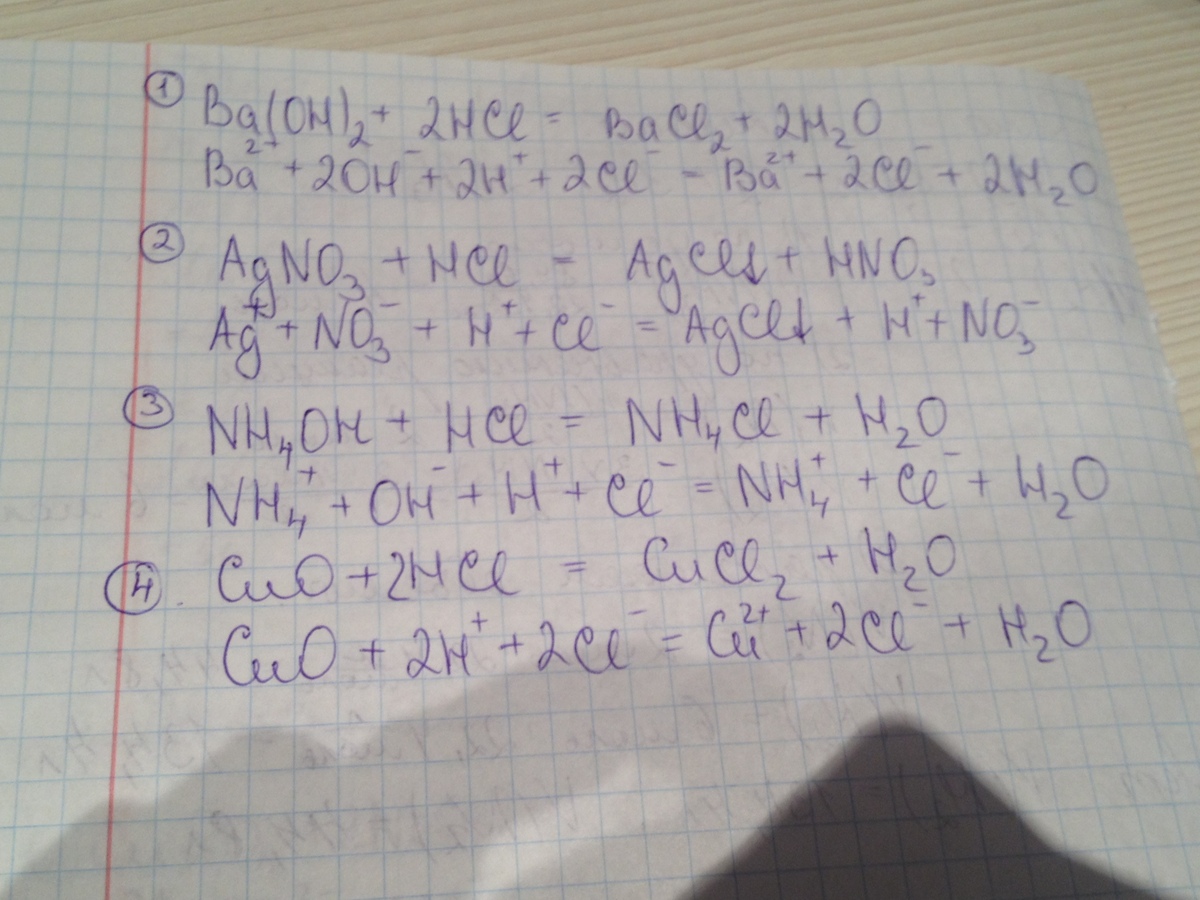 ① Ba(OH)₂ + 2HCl = BaCl₂ + 2H₂O
Ba²⁺ + 2OH⁻ + 2H⁺ + 2Cl⁻ = Ba²⁺ + 2Cl⁻ + 2H₂O
② AgNO₃ + HCl = AgCl↓ + HNO₃
Ag⁺ + NO₃⁻ + H⁺ + Cl⁻ = AgCl↓ + H⁺ + NO₃⁻
③ NH₄OH + HCl = NH₄Cl + H₂O
NH₄⁺ + OH⁻ + H⁺ + Cl⁻ = NH₄⁺ + Cl⁻ + H₂O
④. CuO + 2HCl = CuCl₂ + H₂O
CuO + 2H⁺ + 2Cl⁻ = Cu²⁺ + 2Cl⁻ + H₂O